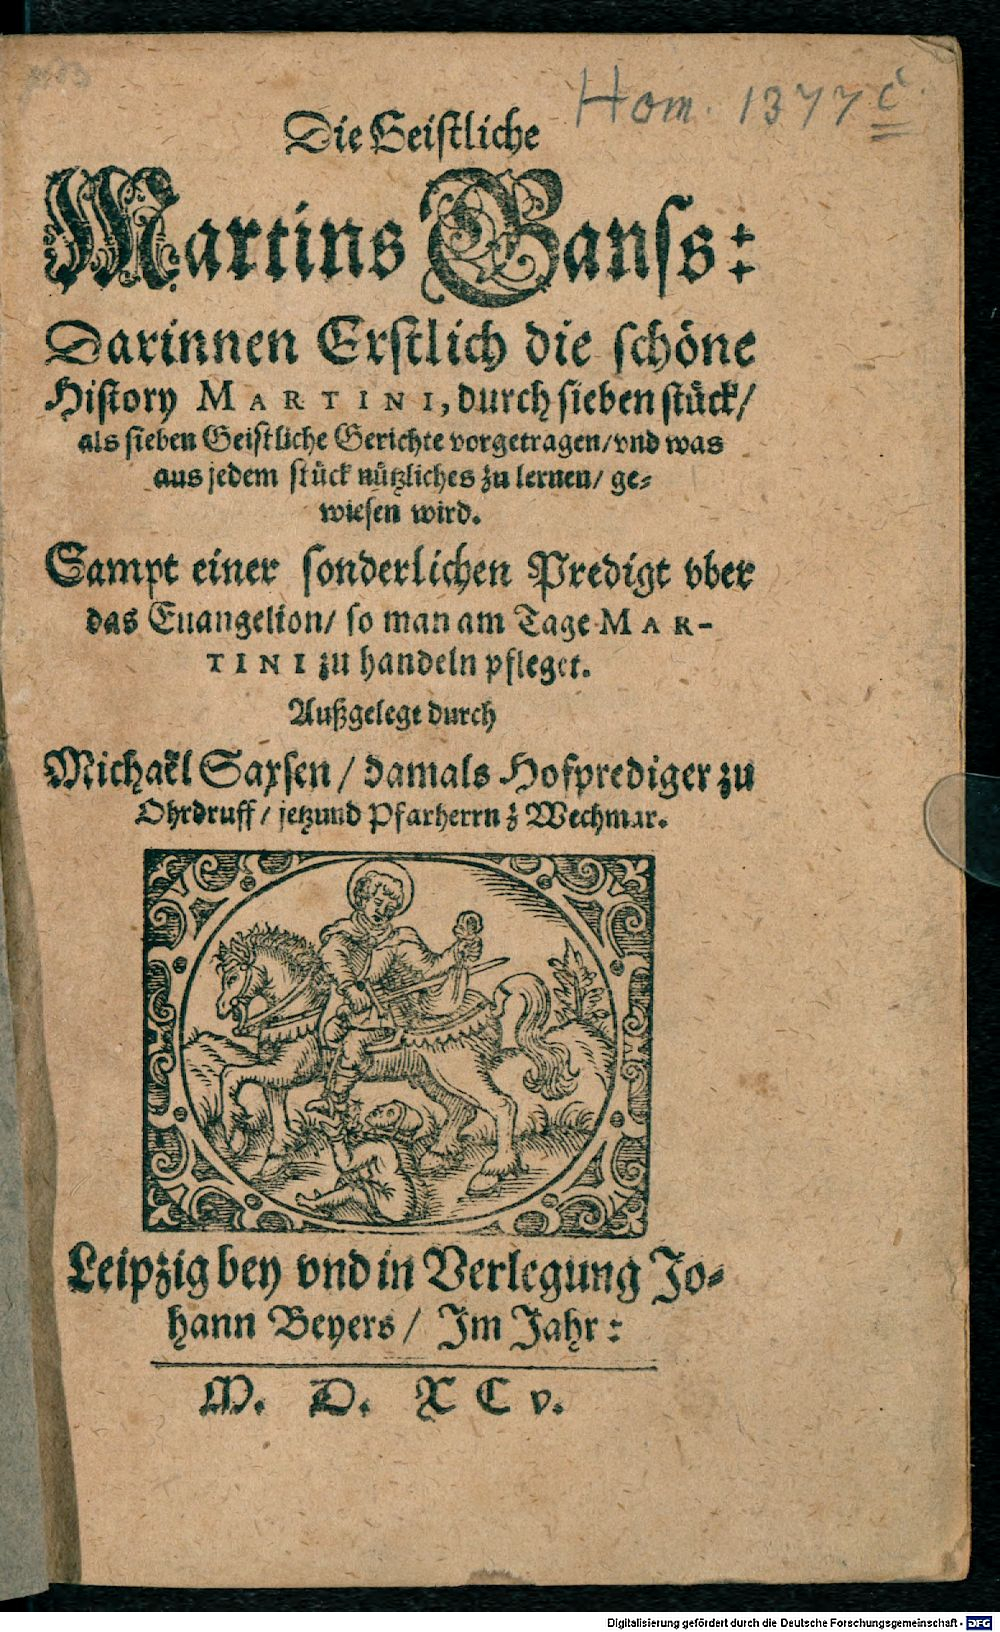 Hom. 1377 c.
Die Geistliche
Martins Ganss:
Darinnen Erstlich die schöne
History MARTINI, durch sieben stück/
als sieben Geistliche Gerichte vorgetragen/ vnd was
aus jedem stück nützliches zu lernen/ ge-
wiesen wird.
Sampt einer sonderlichen Predigt vber
das Euangelion/ so man am Tage MAR-
TINI zu handeln pfleget.
Außgelegt durch
Michaël Saxsen / damals Hofprediger zu
Ohrdruff/ jetzund Pfarherrn z Wechmar.
Leipzig bey vnd in Verlegung Jo-
hann Beyers/ Im Jahr:
M. D. XC v.
Digitalisierung gefördert durch die Deutsche Forschungsgemeinschaft - DFG